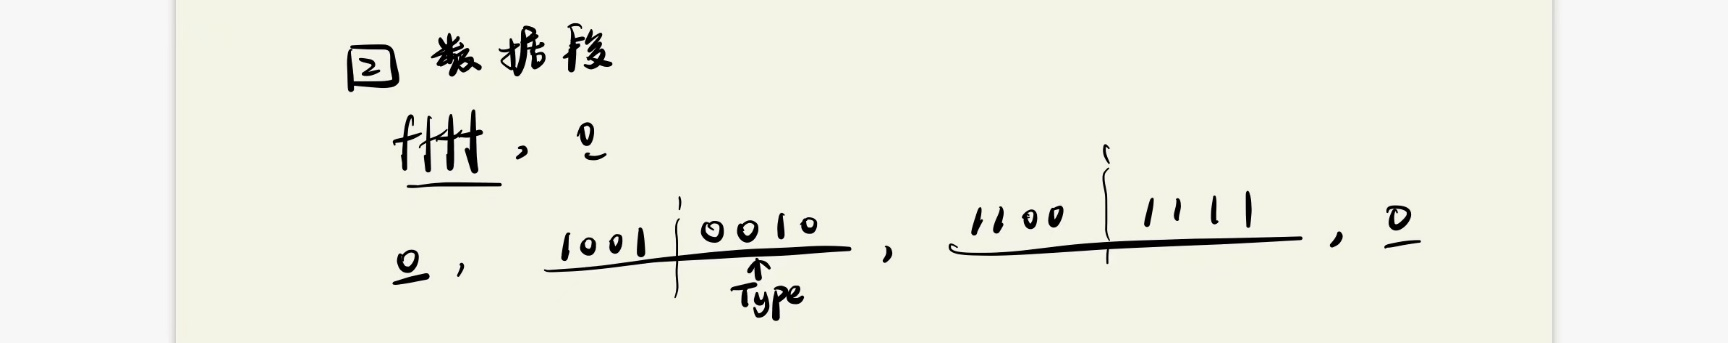 2 数据段
ffff, 0
0, 1001 0010, 1100 1111, 0
↑
Type